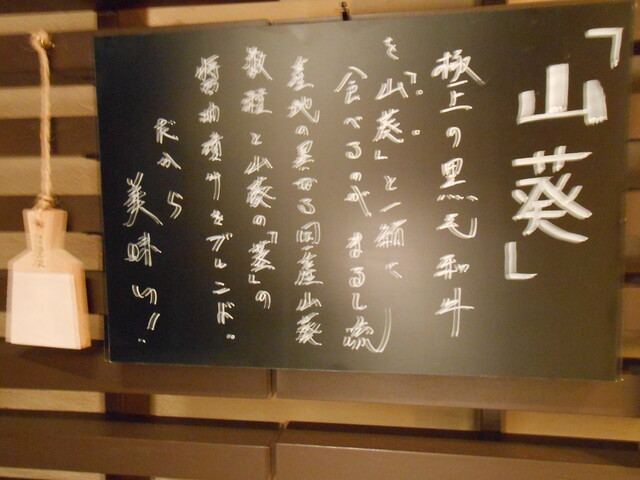 「山葵」
極上の黒毛和牛
を「山葵」と一緒に
食べるのが まるし流
産地の異なる国産山葵
数種と山葵の「茎」の
醤油漬けをブレンド〝
だから
美味い!〟